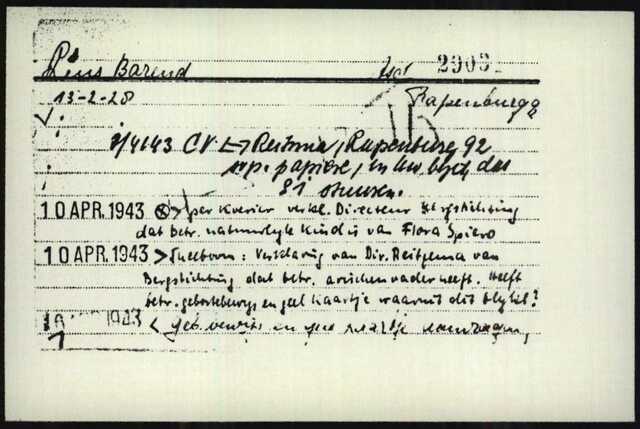 Rens Barend Asd. 2903
13-2-28 Rapenburg 92
8/4143 CV Reitsma, Rapenburg 92
wp. papiere, in
81 sturen.
10 APR. 1943 > per Koerier verkl. Directeur Bergstichting
dat betr. naturlyke Kind is van Flora Spiero
10 APR. 1943 > Verklaring van Dir. Reitzema van
Bergstichting dat betr. arischen vader heeft. Heeft
betr. geboortebewys en geel Kaartje waaruit dit blykt?
1943 < geb. bewys en geel aanvragen,